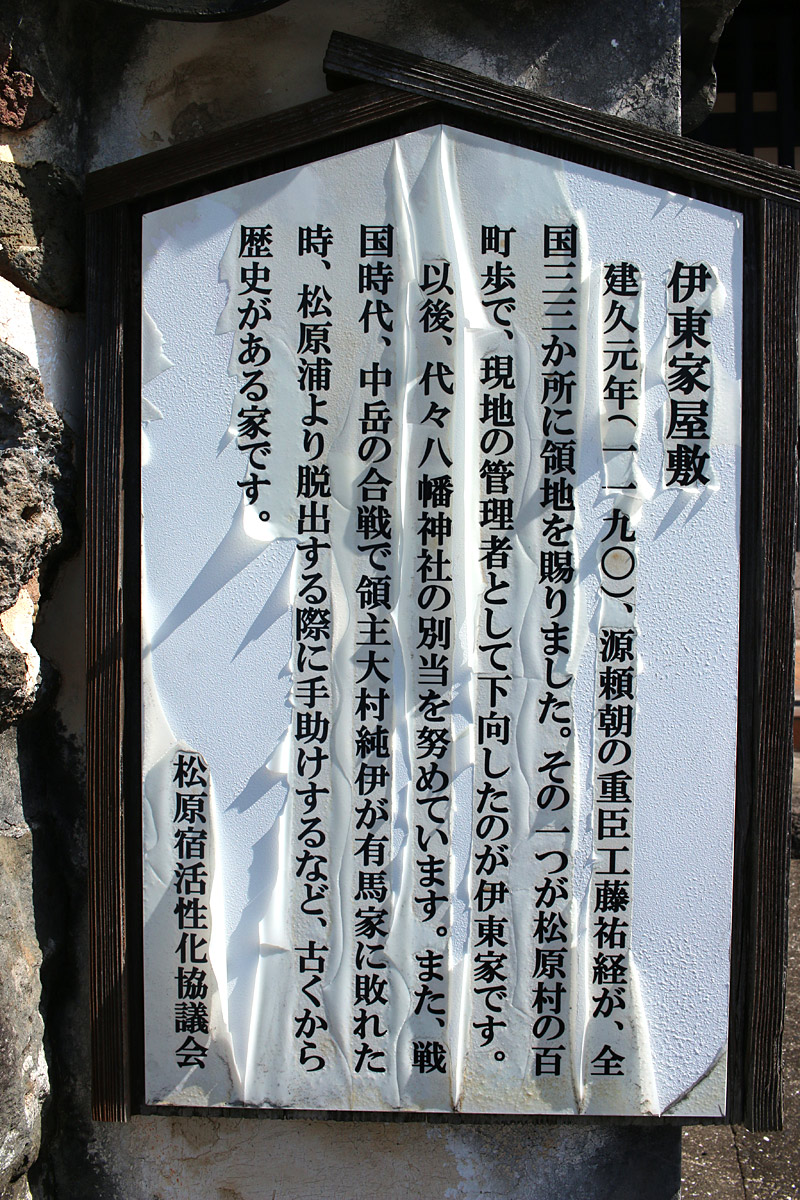 伊東家屋敷
建久元年（一一九〇）、源頼朝の重臣工藤祐経が、全
国三三か所に領地を賜りました。その一つが松原村の百
町歩で、現地の管理者として下向したのが伊東家です。
以後、代々八幡神社の別当を努めています。また、戦
国時代、中岳の合戦で領主大村純伊が有馬家に敗れた
時、松原浦より脱出する際に手助けするなど、古くから
歴史がある家です。
松原宿活性化協議会